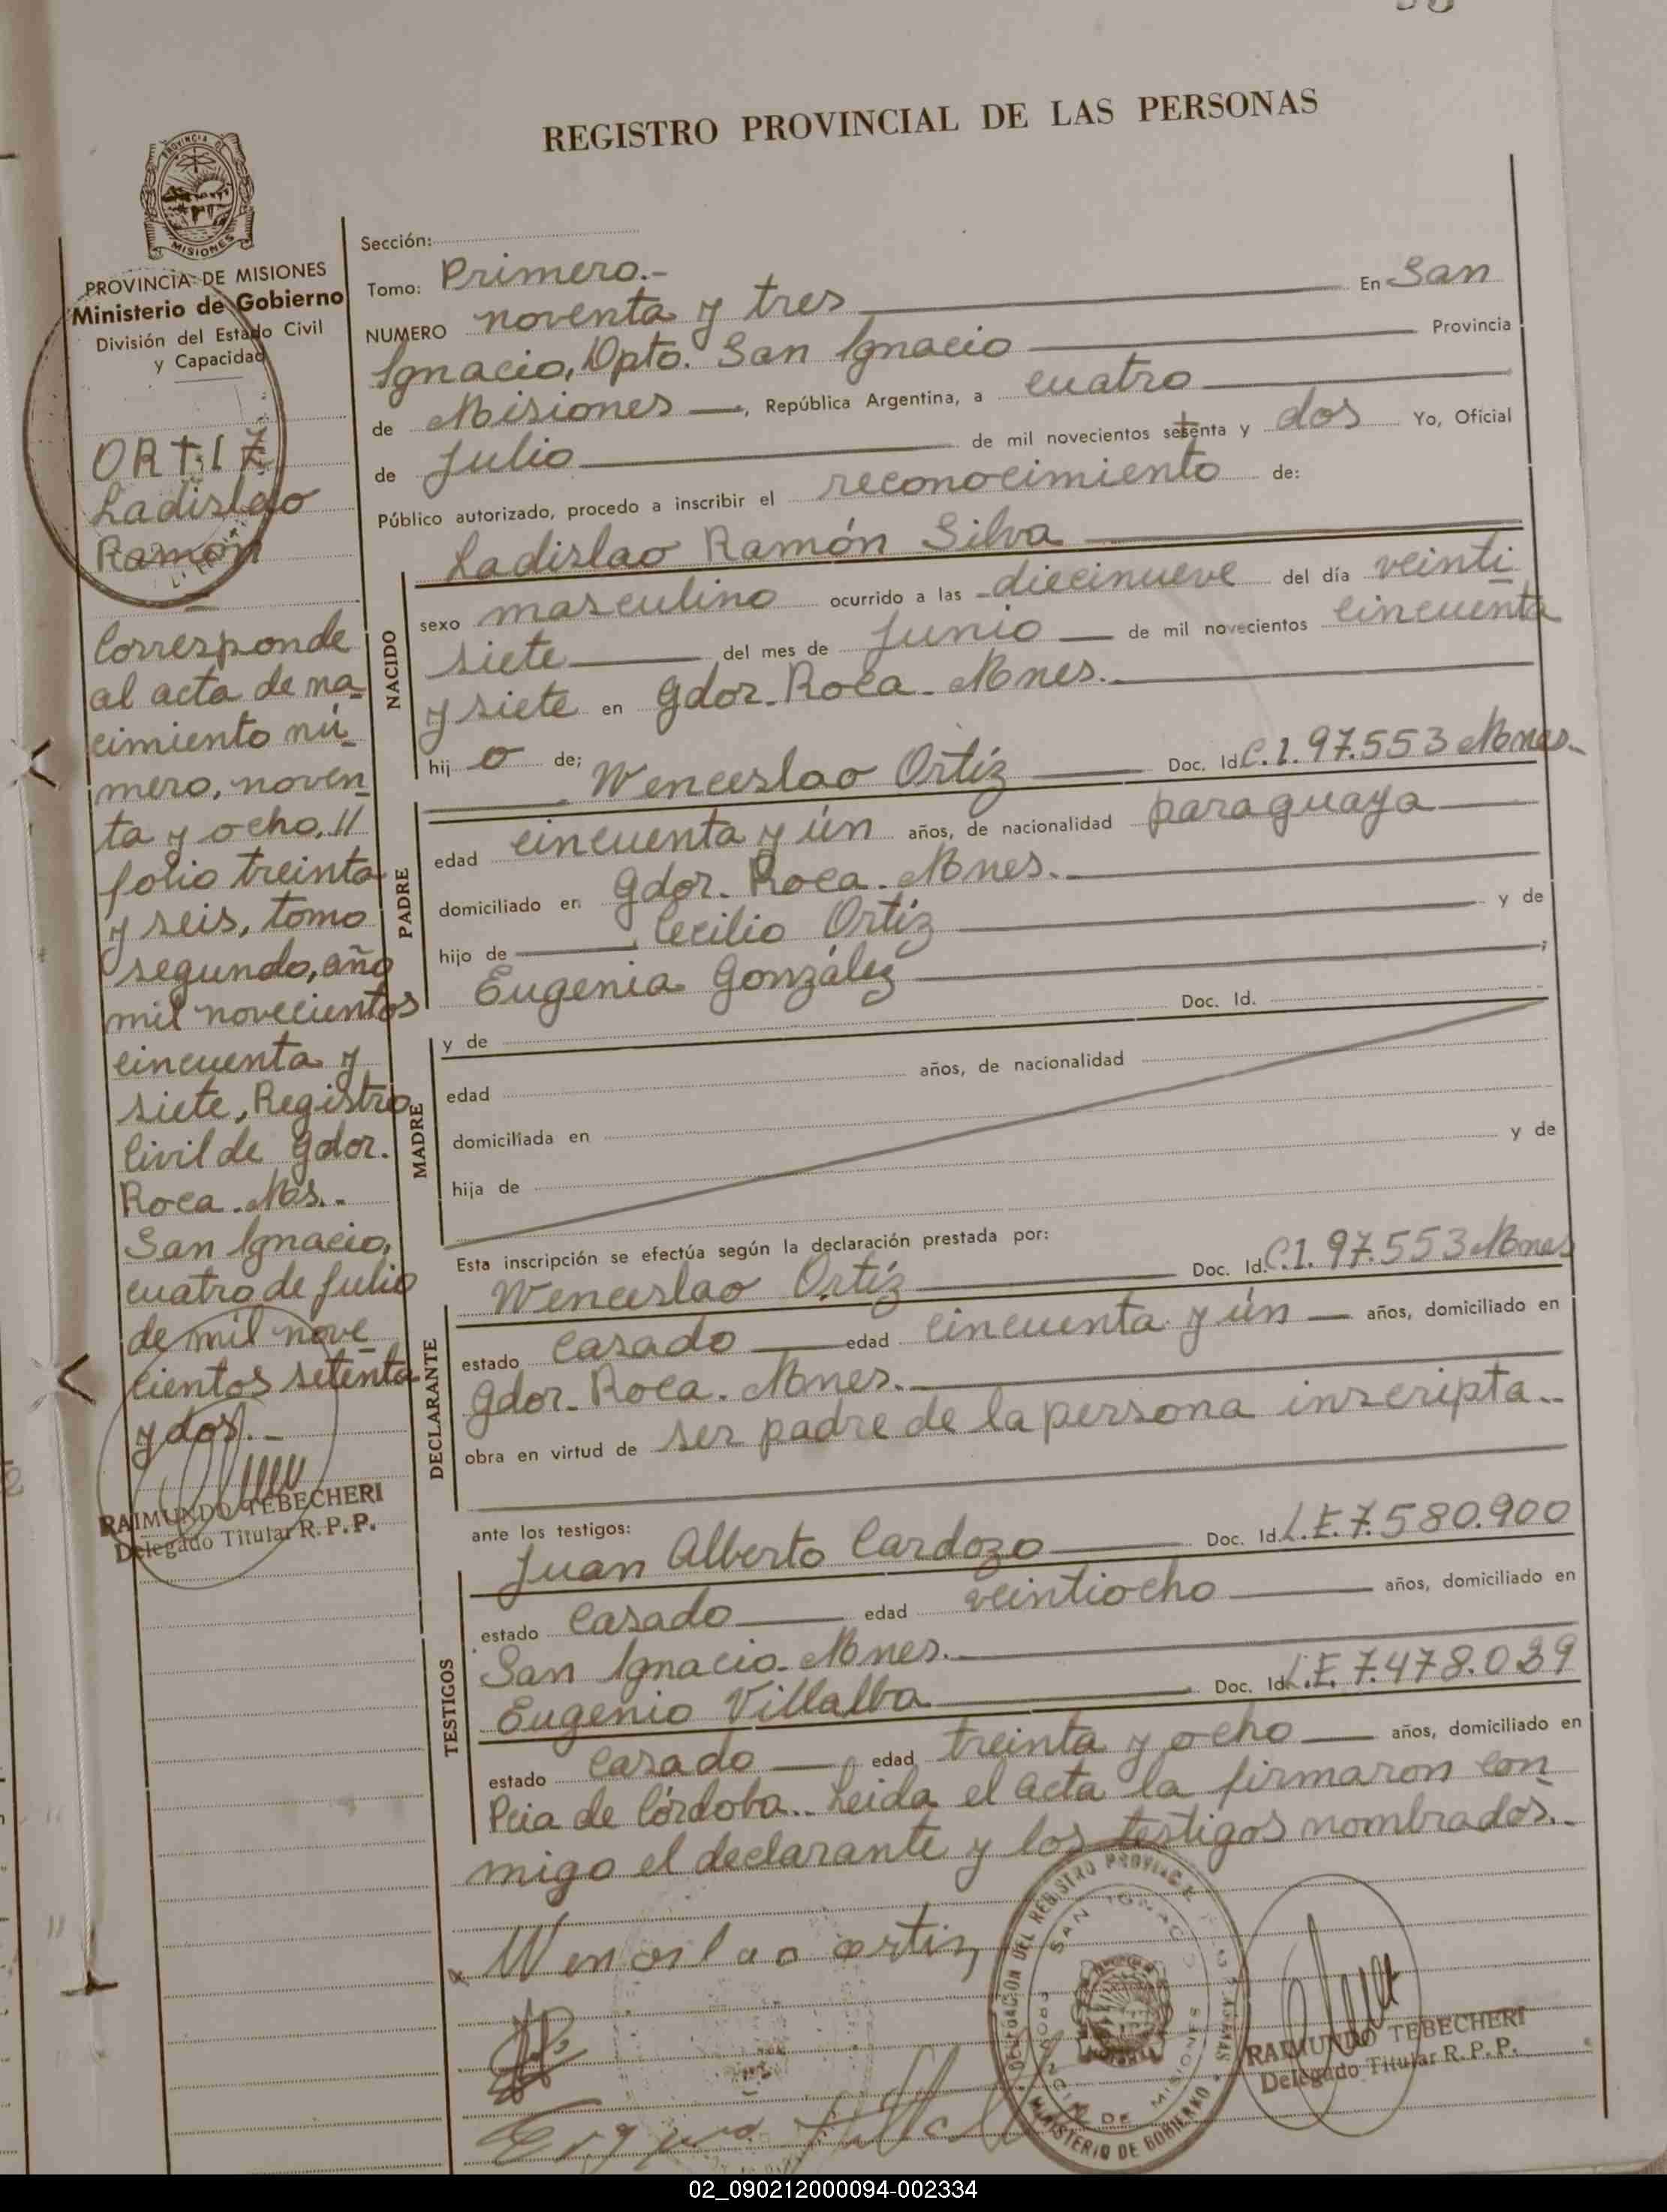 REGISTRO PROVINCIAL DE LAS PERSONAS
PROVINCIA DE MISIONES
Ministerio de Gobierno
División del Estado Civil
y Capacidad
ORTIZ
Ladislao
Ramón
Corresponde
al acta de na-
cimiento nú-
mero, noven-
ta y ocho, //
folio treinta
y seis, tomo
segundo, año
mil novecientos
cincuenta y
siete, Registro
Civil de Gdor.
Roca. Mns.-
San Ignacio,
cuatro de Julio
de mil nove-
cientos setenta
y dos.-
RAIMUNDO TEBECHERI
Delegado Titular R.P.P.
Sección:
Tomo: Primero.-
NUMERO noventa y tres En San
Ignacio, Dpto. San Ignacio Provincia
de Misiones, República Argentina, a cuatro
de Julio de mil novecientos setenta y dos Yo, Oficial
Público autorizado, procedo a inscribir el reconocimiento de:
Ladislao Ramón Silva
NACIDO
sexo masculino ocurrido a las diecinueve del día veinti
siete del mes de Junio de mil novecientos cincuenta
y siete en Gdor. Roca. Mnes.
hij o de; Wenceslao Ortíz Doc. Id. C.I. 97.553 Mnes.-
PADRE
edad cincuenta y ún años, de nacionalidad paraguaya
domiciliado en Gdor. Roca. Mnes.
hijo de Cecilio Ortíz y de
Eugenia González ;
MADRE
y de Doc. Id.
edad años, de nacionalidad
domiciliada en
hija de y de
Esta inscripción se efectúa según la declaración prestada por:
Wenceslao Ortíz Doc. Id. C.I. 97.553 Mnes
DECLARANTE
estado casado edad cincuenta y ún años, domiciliado en
Gdor. Roca. Mnes.
obra en virtud de ser padre de la persona inscripta.-
ante los testigos:
Juan Alberto Cardozo Doc. Id. L.E. 7.580.900
TESTIGOS
estado casado edad veintiocho años, domiciliado en
San Ignacio. Mnes.
Eugenio Villalba Doc. Id. L.E. 7.478.039
estado casado edad treinta y ocho años, domiciliado en
Pcia de Córdoba.. Leida el acta la firmaron con-
migo el declarante y los testigos nombrados.-
Wenceslao ortiz
DELEGACION DEL REGISTRO PROVINCIAL DE LAS PERSONAS
SAN IGNACIO
MISIONES
MINISTERIO DE GOBIERNO
RAIMUNDO TEBECHERI
Delegado Titular R.P.P.
02_090212000094-002334